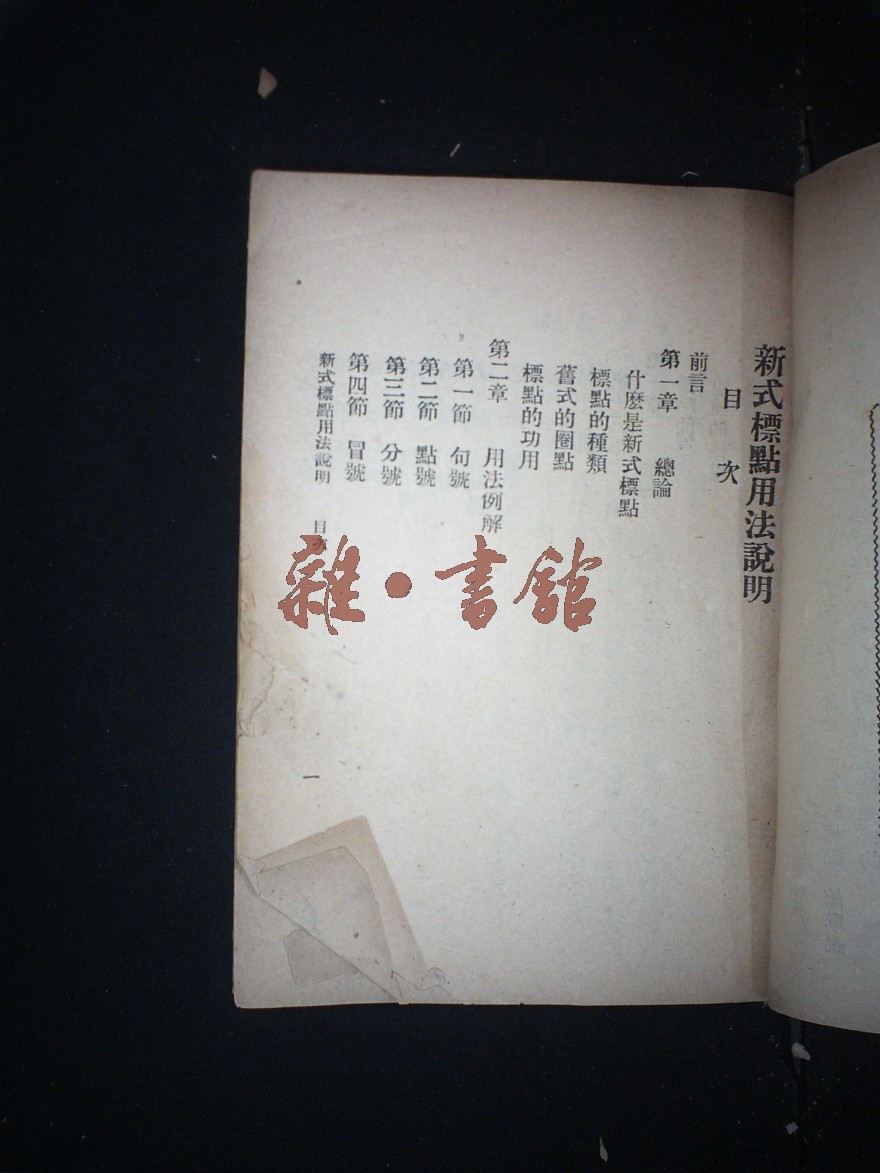 新式標點用法說明
目次
前言
第一章 總論
什麼是新式標點
標點的種類
舊式的圈點
標點的功用
第二章 用法例解
第一節 句號
第二節 點號
第三節 分號
第四節 冒號
新式標點用法說明 目次
一
雜·書館